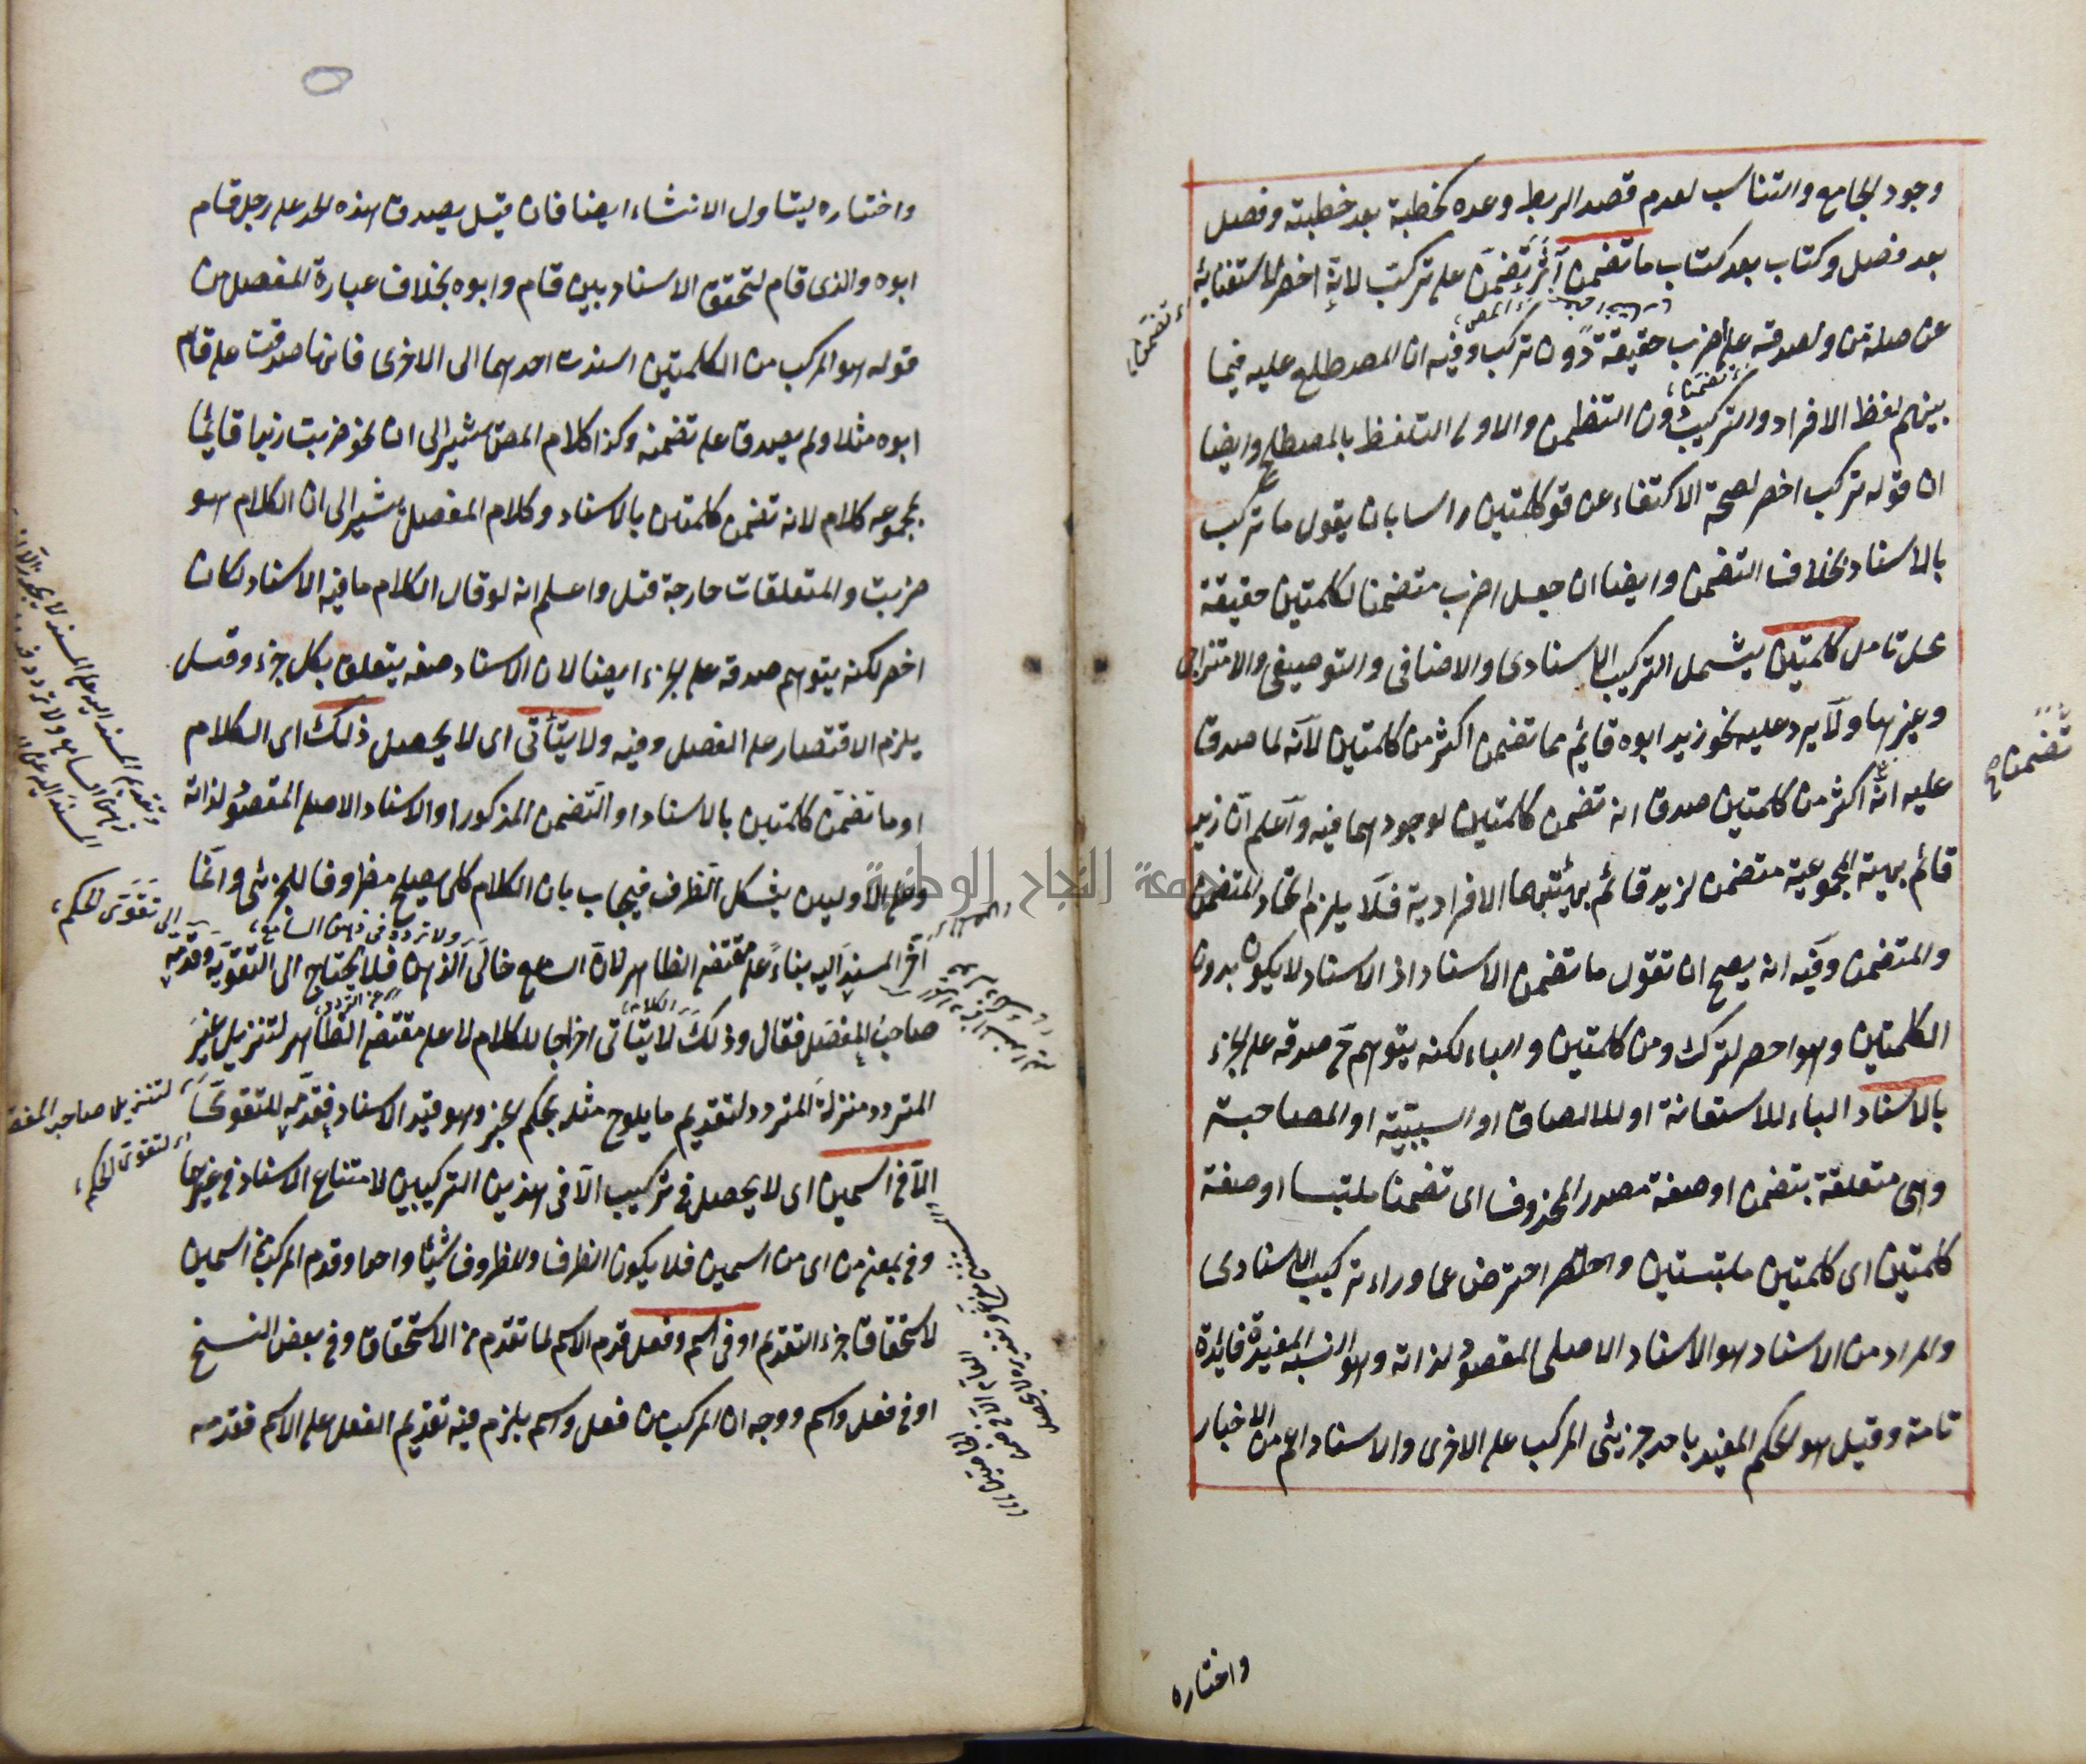 وجود الجامع والتناسب لعدم قصد الربط وعده كخطبة بعد خطبته وفصل
بعد فصل وكتاب بعد كتاب ما تضمن آثر تضمن على تركب لانه اخصر لاستغنائه
عن صلة من ولصدقه على اضرب حقيقة دون تركب وفيه ان المصطلح عليه فيما
بينهم لفظ الافراد والتركيب دون التضمن والاولى التلفظ بالمصطلح وايضا
ان قوله تركب اخصر لصحة الاكتفاء عن قو كلمتين راسا بان يقول ما تركب
بالاسناد بخلاف التضمن وايضا ان جعل اضرب متضمنا لكلمتين حقيقة
محل تامل كلمتين يشمل التركيب الاسنادى والاضافى والتوصيفى والامتزاجى
وغيرها ولا يرد عليه نحو زيد ابوه قائم مما تضمن اكثر من كلمتين لانه لما صدق
عليه انه اكثر من كلمتين صدق انه تضمن كلمتين لوجودهما فيه واعلم ان زيد
قائم بهيئة المجموعية متضمن لزيد قائم بهيئتهما الافرادية فلا يلزم اتحاد المتضمن
والمتضمن وفيه انه يصح ان تقول ما تضمن الاسناد اذ الاسناد لا يكون بدون
الكلمتين وهو اخصر لترك ومن كلمتين وا لكنه يتوهم ح صدقه على الجزء
بالاسناد الباء للاستعانة او للالصاق او السببيّة او المصاحبة
وهى متعلقة بتضمن او صفة مصدر المحذوف اى تضمنا ملتبسا او صفة
كلمتين اى كلمتين ملتبستين احترض عما وراء تركيب الاسنادى
والمراد من الاسناد هو الاسناد الاصلى المقصود لذاته وهو النسبة المفيدة فائدة
تامة وقيل هو الحكم المفيد باحد جزئى المركب على الاخرى والاسناد اعم من الاخبار
واختاره
تضمن
تضمن ح
واختاره ليتناول الانشاء ايضا فان قيل يصدق هذه الحد على رجل قام
ابوه والذى قام لتحقق الاسناد بين قام وابوه بخلاف عبارة المفصل من
قوله هو المركب من الكلمتين اسندت احديهما الى الاخرى فانها صدقت على قام
ابوه مثلا ولم يصدق على تضمنه وكذا كلام المص يشير الى ان نحو ضربت زيدا قائما
بمجموعه كلام لانه تضمن كلمتين بالاسناد وكلام المفصل يشير الى ان الكلام هو
ضربت والمتعلقات خارجة قيل واعلم انه لو قال الكلام ما فيه الاسناد لكان
اخصر لكنه يتوهم صدقه على الجزء ايضا لان الاسناد صفة يتعلق بكل جزء وقيل
يلزم الاقتصار على الفصل وفيه ولا يتأتى اى لا يحصل ذلك اى الكلام
او ما تضمن كلمتين بالاسناد او التضمن المذكور او الاسناد الاصلى المقصود لذاته
وعلى الاوليين يشكل الظرف فيجاب بان الكلام كلى يصلح مظروفا للجزئى وانما
اخر المسند اليه بناء على مقتضى الظاهر لان السامع خالى الذهن فلا يحتاج الى التقوية وقدمه
صاحب المفصل فقال وذلك لا يتأتى اخراجا للكلام لا على مقتضى الظاهر لتنزيل غير
المتردد منزلة المتردد لتقديم ما يلوح مثله بحكم الخبر وهو قيد الاسناد فقدمه للتقوى
الا فى اسمين اى لا يحصل فى تركيب الا فى هذين التركيبين لامتناع الاسناد فى غيرها
وفى بمعنى من اى من اسمين فلا يكون الظرف والمظروف شيئا واحدا وقدم المركب من اسمين
لاستحقاق جزء التقديم او فى اسم وفعل قدم الاسم لما تقدم من الاستحقاق وفى بعض النسخ
او فى فعل واسم ووجه ان المركب من فعل واسم يلزم فيه تقديم الفعل على الاسم فقدمه
ولا تردد فى ذهن السامع
لتنزيل صاحب المفصل
لتقوى الحكم